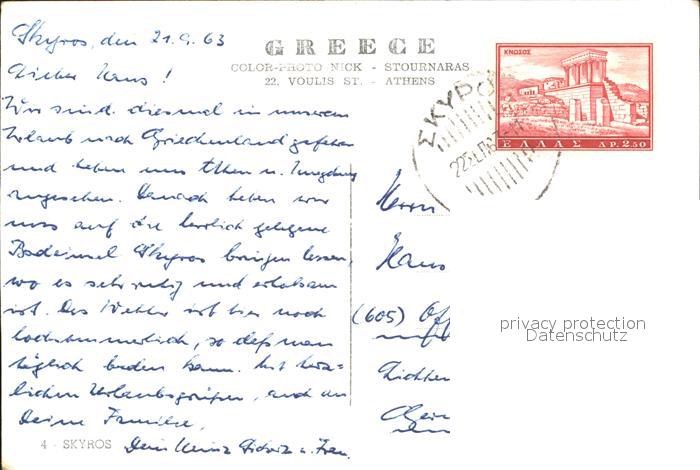 Skyros, den 21.9.63
Lieber Hans!
Wir sind diesmal in unserem
Urlaub nach Griechenland gefahren
und haben uns Athen u. Umgebung
angesehen. Danach haben wir
uns auf die herrlich gelegene
Badeinsel Skyros bringen lassen,
wo es sehr ruhig und erholsam
ist. Das Wetter ist hier noch
hochsommerlich, so daß man
täglich baden kann. Mit herz-
lichen Urlaubsgrüßen, auch an
Deine Familie,
Dein Heinz u. Frau
4 - SKYROS
GREECE
COLOR-PHOTO NICK - STOURNARAS
22, VOULIS ST. - ATHENS
ΚΝΩΣΟΣ
ΕΛΛΑΣ ΔΡ. 2.50
ΣΚΥΡΟ
Herrn
Hans
(605) Off
privacy protection
Datenschutz